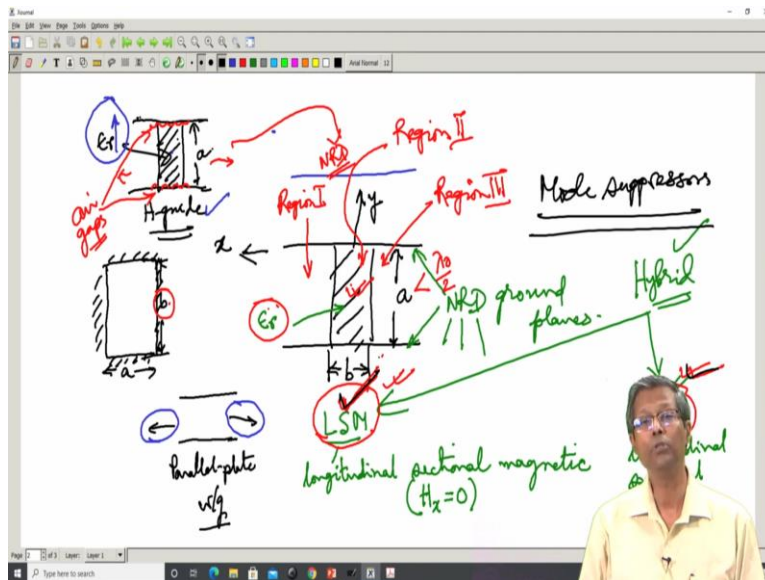 Journal
File Edit View Page Tools Options Help
Arial Normal 12
Er
a
air gaps
H-guide
NRD
Region I
Region II
Region III
Mode suppressors
Hybrid
x
y
Er
a < λ0/2
NRD ground planes.
b
b
a
Parallel-plate w/g
LSM
longitudinal sectional magnetic
(Hx=0)
Page 2 of 3 Layer: Layer 1
Type here to search